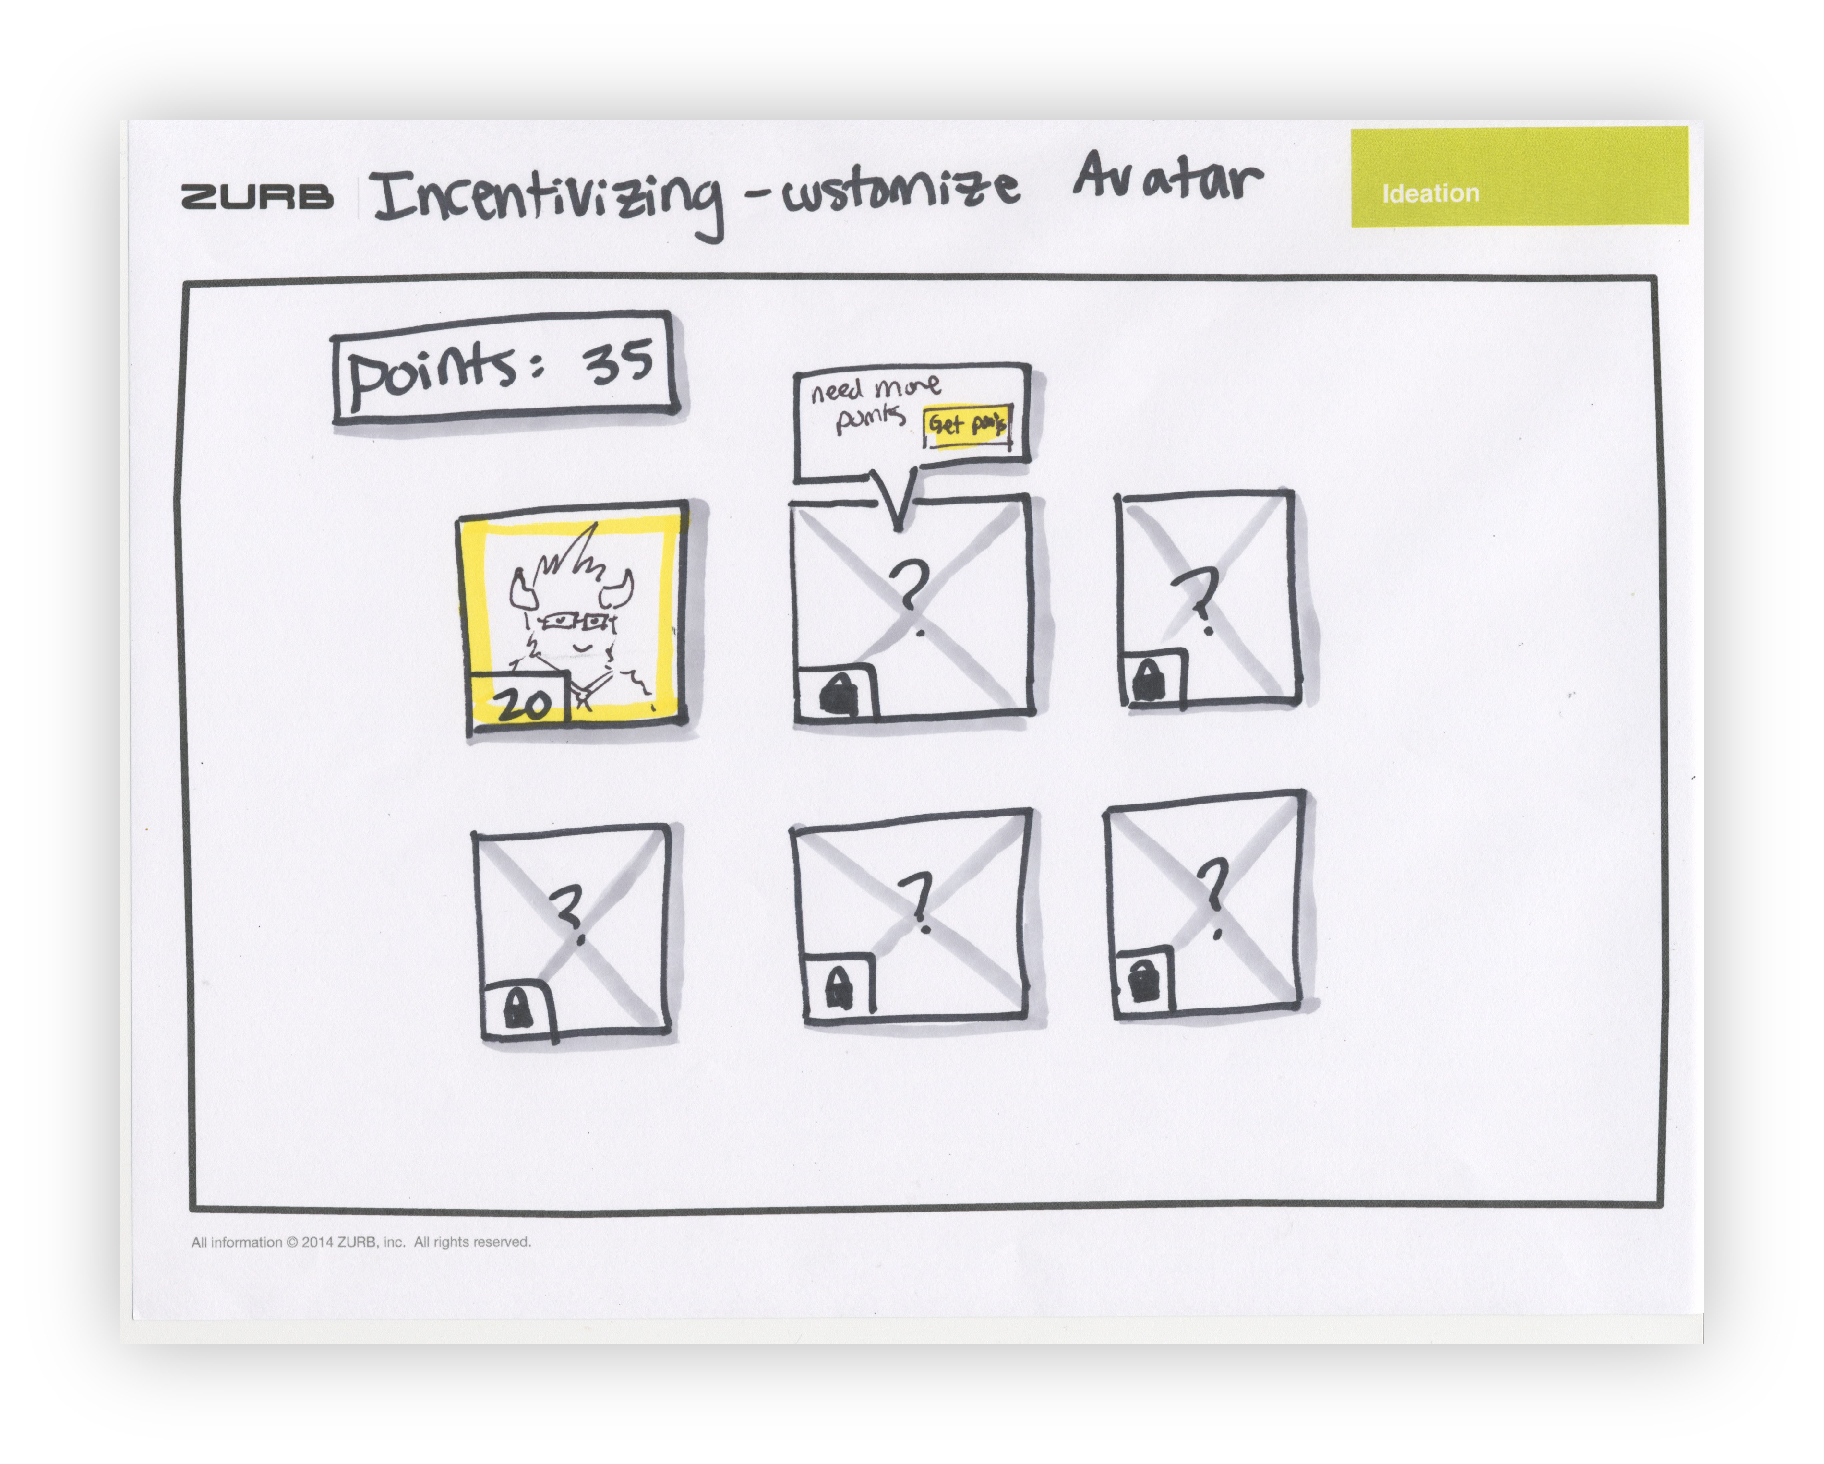 ZURB
Incentivizing - customize Avatar
Ideation
points: 35
need more
points
Get points
20
?
?
?
?
?
All information © 2014 ZURB, inc. All rights reserved.